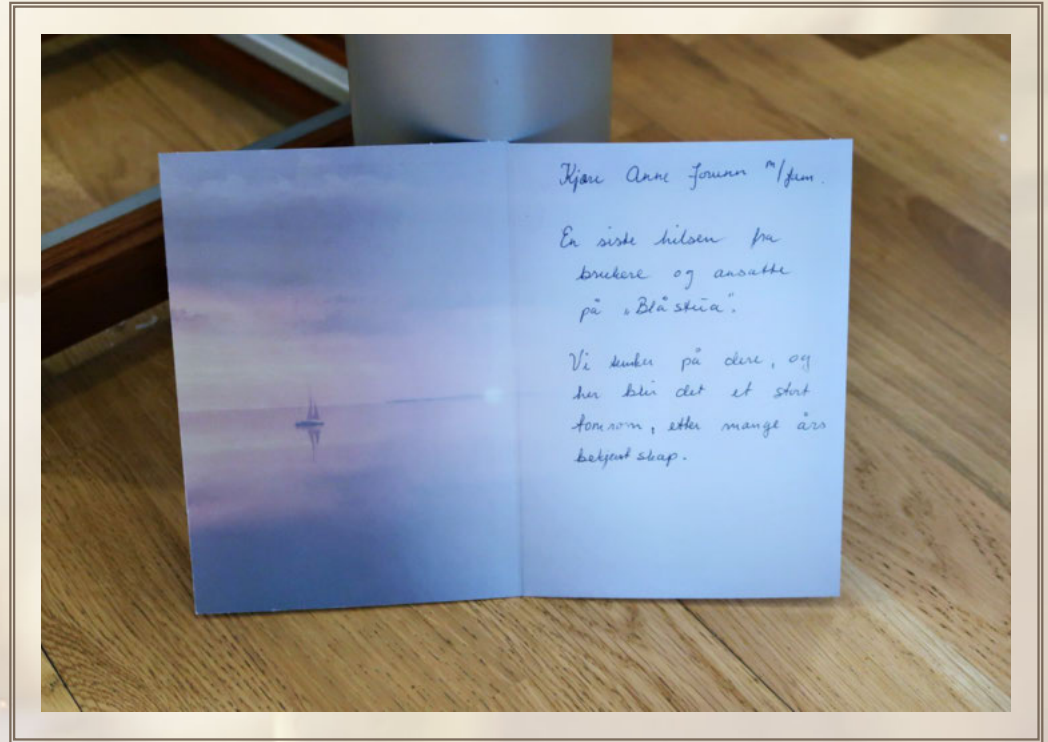 Kjære Anne Jorunn m/fam.
En siste hilsen fra
brukere og ansatte
på „Blåstua".
Vi tenker på dere, og
her blir det et stort
tomrom, etter mange års
bekjentskap.